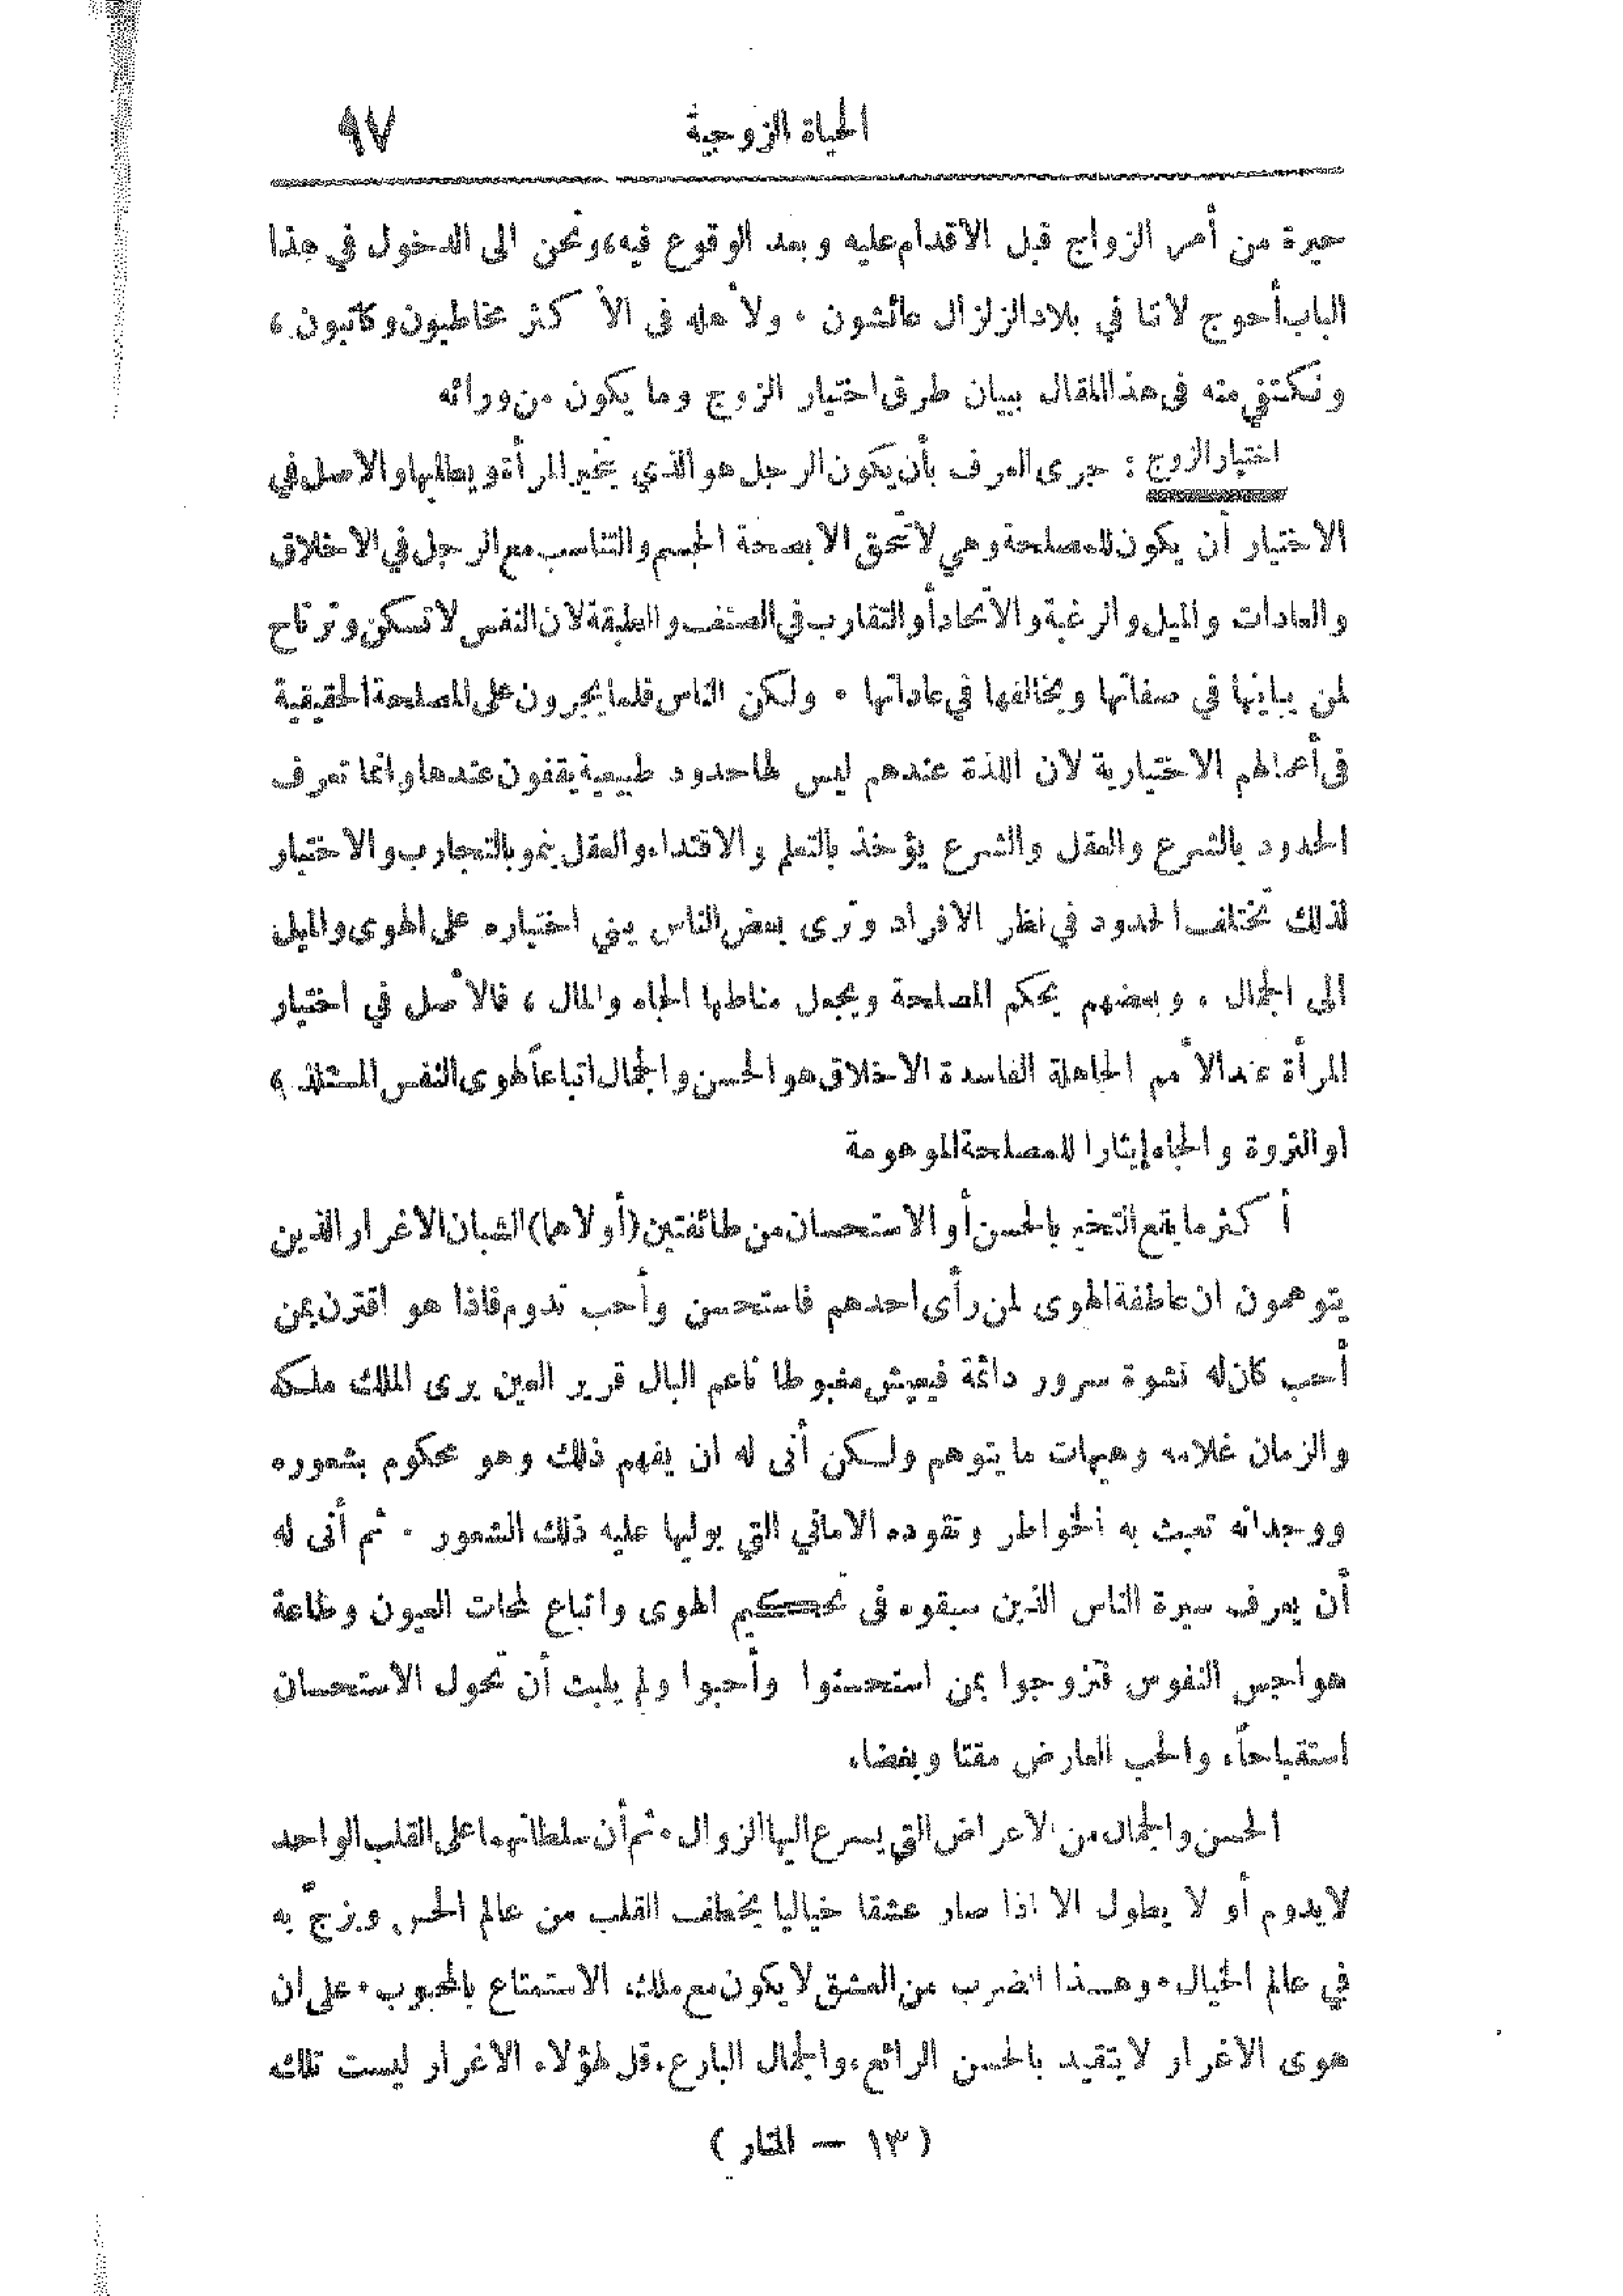 الحياة الزوجية ٩٧
حيرة من أمر الزواج قبل الاقدام عليه وبعد الوقوع فيه، ونحن الى الدخول في هذا
الباب أحوج لأنا في بلاد الزلزال عائشون ، ولأهله فى الأكثر مخاطبون وكاتبون ،
ونكتفي منه فى هذا المقال ببيان طرق اختيار الزوج وما يكون من ورائه
اختيار الزوج : جرى العرف بأن يكون الرجل هو الذي يتخير المرأة ويطلبها والاصل في
الاختيار أن يكون للمصلحة وهي لا تتحقق الا بصحة الجسم والتناسب مع الرجل في الاخلاق
والعادات والميل والرغبة والاتحاد أو التقارب في الصنف والطبقة لان النفس لا تسكن وترتاح
لمن يباينها في صفاتها ويخالفها في عاداتها ٠ ولكن الناس قلما يجرون على المصلحة الحقيقية
فى أعمالهم الاختيارية لان اللذة عندهم ليس لها حدود طبيعية يقفون عندها وانما تعرف
الحدود بالشرع والعقل والشرع يؤخذ بالتعلم والاقتداء والعقل ينمو بالتجارب والاختبار
لذلك تختلف الحدود في نظر الافراد وترى بعض الناس يبني اختياره على الهوى والميل
الى الجمال ، وبعضهم يحكم المصلحة ويجعل مناطها الجاه والمال ، فالأصل في اختيار
المرأة عند الأمم الجاهلة الفاسدة الاخلاق هو الحسن والجمال اتباعاً لهوى النفس المستلذ ،
او الثروة والجاه إيثارا للمصلحة الموهومة
أكثر ما يقع التخير بالحسن أو الاستحسان من طائفتين (أولاهما) الشبان الاغرار الذين
يتوهمون ان عاطفة الهوى لمن رأى احدهم فاستحسن وأحب تدوم فاذا هو اقترن بمن
أحب كان له نشوة سرور دائمة فيعيش مغبوطا ناعم البال قرير العين يرى الملك ملكه
والزمان غلامه وهيهات ما يتوهم ولكن أنى له ان يفهم ذلك وهو محكوم بشعوره
ووجدانه تعبث به الخواطر وتقوده الاماني التي يوليها عليه ذلك الشعور ٠ ثم أنى له
أن يعرف سيرة الناس الذين سبقوه فى تحكيم الهوى واتباع لمحات العيون وطاعة
هواجس النفوس فتزوجوا بمن استحسنوا وأحبوا ولم يلبث أن تحول الاستحسان
استقباحاً، والحب العارض مقتا وبغضا،
الحسن والجمال من الاعراض التي يسرع اليها الزوال ٠ ثم أن سلطانهما على القلب الواحد
لا يدوم أو لا يطول الا اذا صار عشقا خياليا يخطف القلب من عالم الحس ويزجّ به
في عالم الخيال ٠ وهذا الضرب من العشق لا يكون مع ملك الاستمتاع بالمحبوب ٠ على ان
هوى الاغرار لا يتقيد بالحسن الرائع، والجمال البارع، قل لهؤلاء الاغرار ليست تلك
(١٣ — المنار)